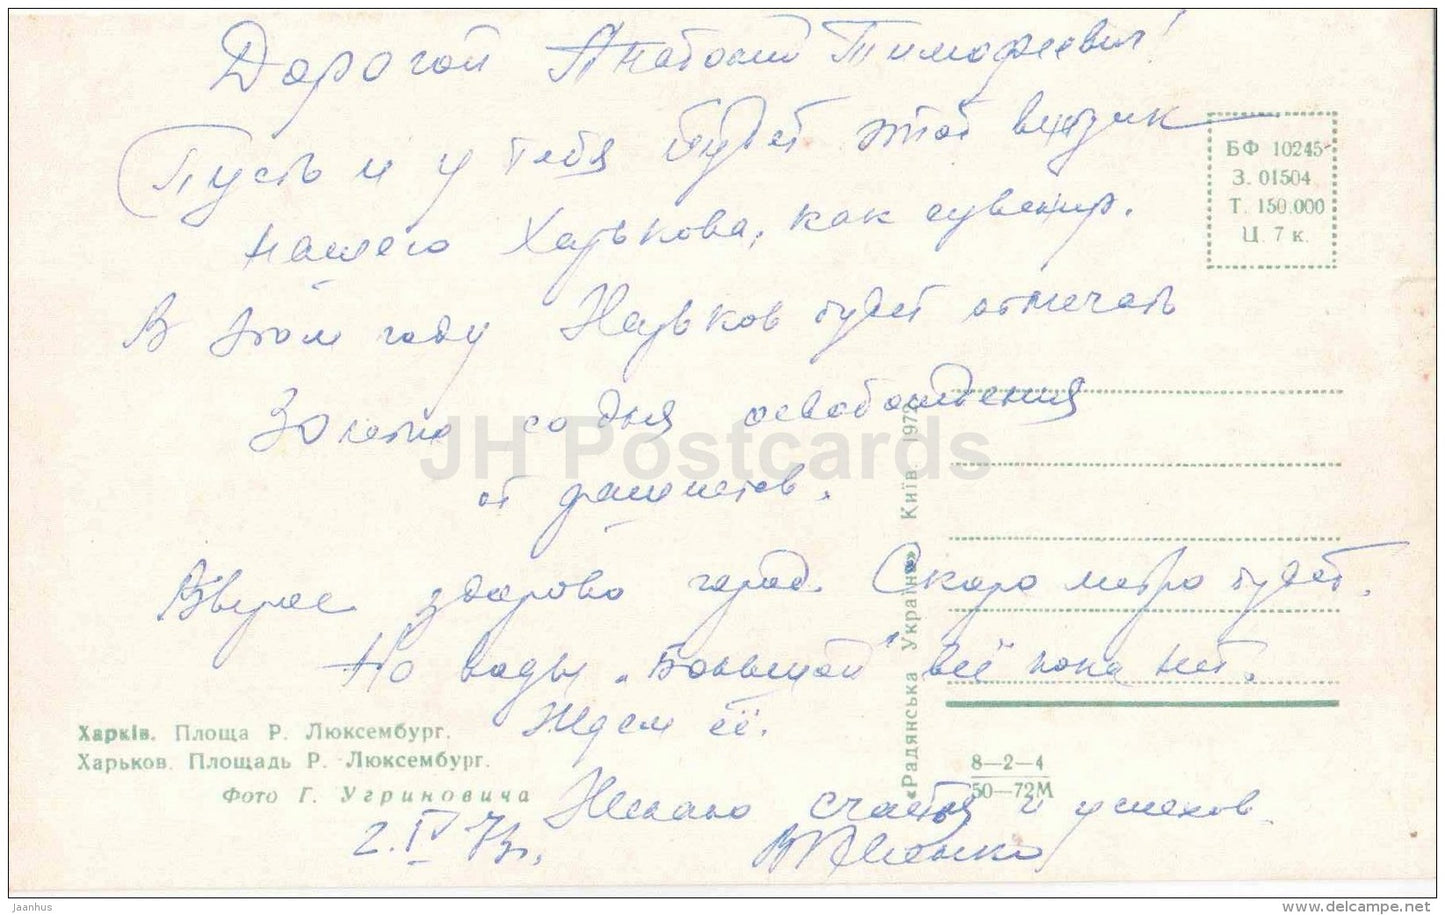 Дорогой Анатолий Тимофеевич!
Пусть и у тебя будет этот
нашего Харькова, как сувенир.
В этом году Харьков будет отмечать
30 летие со дня освобождения
от фашистов.
здорово город. Скоро метро будет.
Но воды „Большой" всё пока нет.
Ждем её.
Желаю счастья и успехов.
2.IV 73г.
БФ 10245
З. 01504
Т. 150.000
Ц. 7 к.
Харків. Площа Р. Люксембург.
Харьков. Площадь Р. Люксембург.
Фото Г. Угриновича
«Радянська Україна» Київ 1972
8—2—4
50—72М
JH Postcards
jaanhus
www.delcampe.net